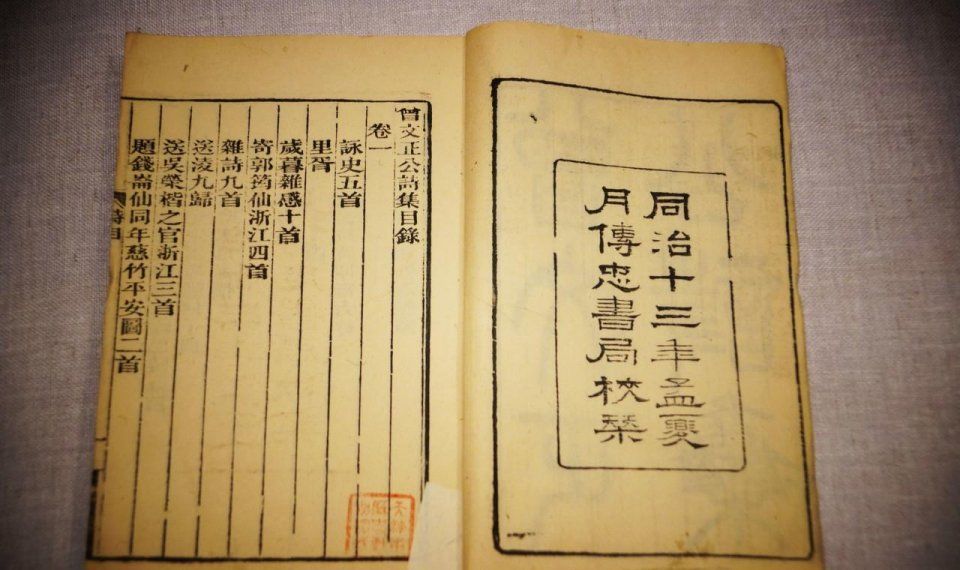 同治十三年孟夏
月傳忠書局校栞
曾文正公詩集目錄
卷一
詠史五首
里胥
歲暮雜感十首
寄郭筠仙浙江四首
雜詩九首
送淩九歸
送吳榮楷之官浙江三首
題錢崙仙同年慈竹平安圖二首
詩目